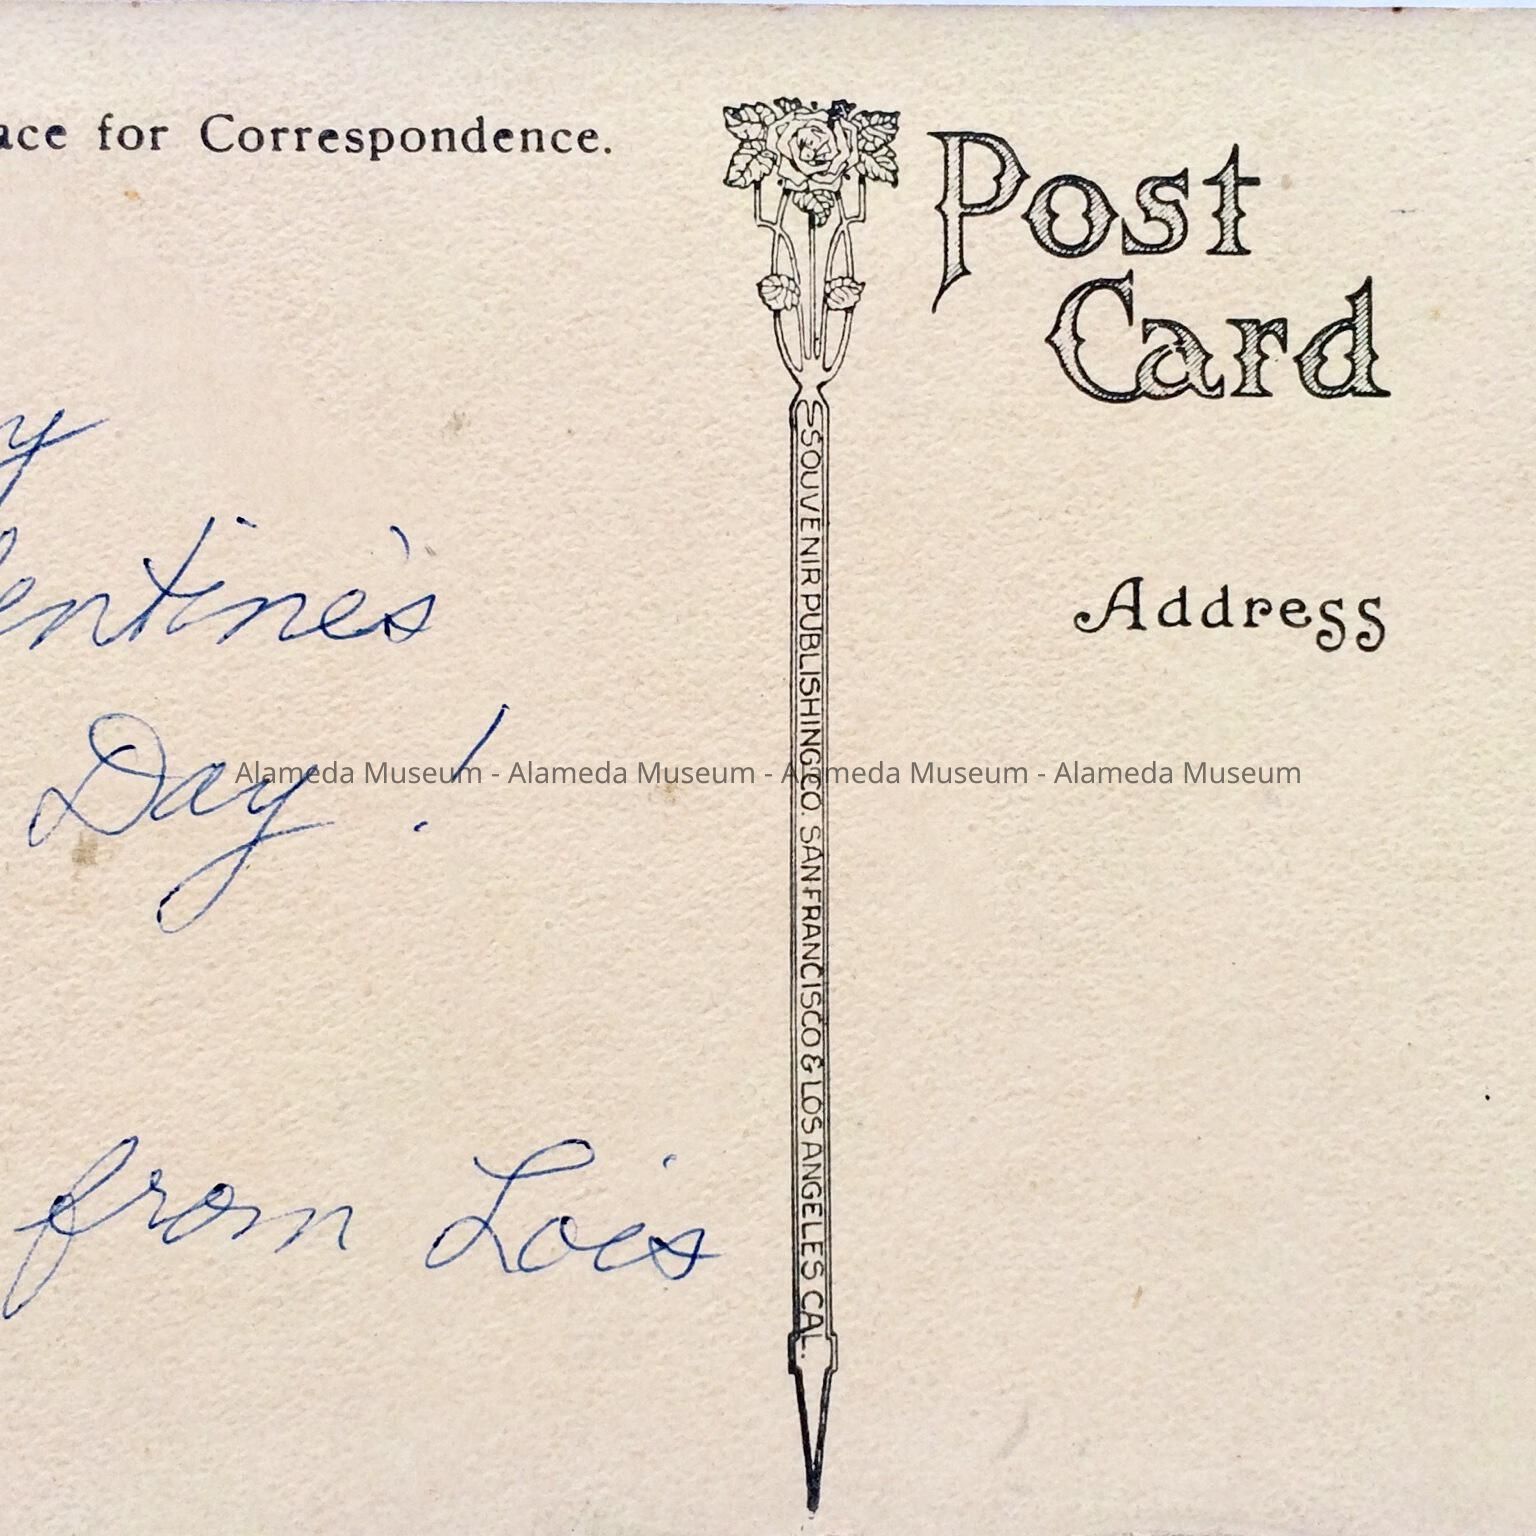 ace for Correspondence.
Post
Card
Address
y
entine's
Day!
from Lois
SOUVENIR PUBLISHING CO. SAN FRANCISCO & LOS ANGELES CAL.
Alameda Museum - Alameda Museum - Alameda Museum - Alameda Museum